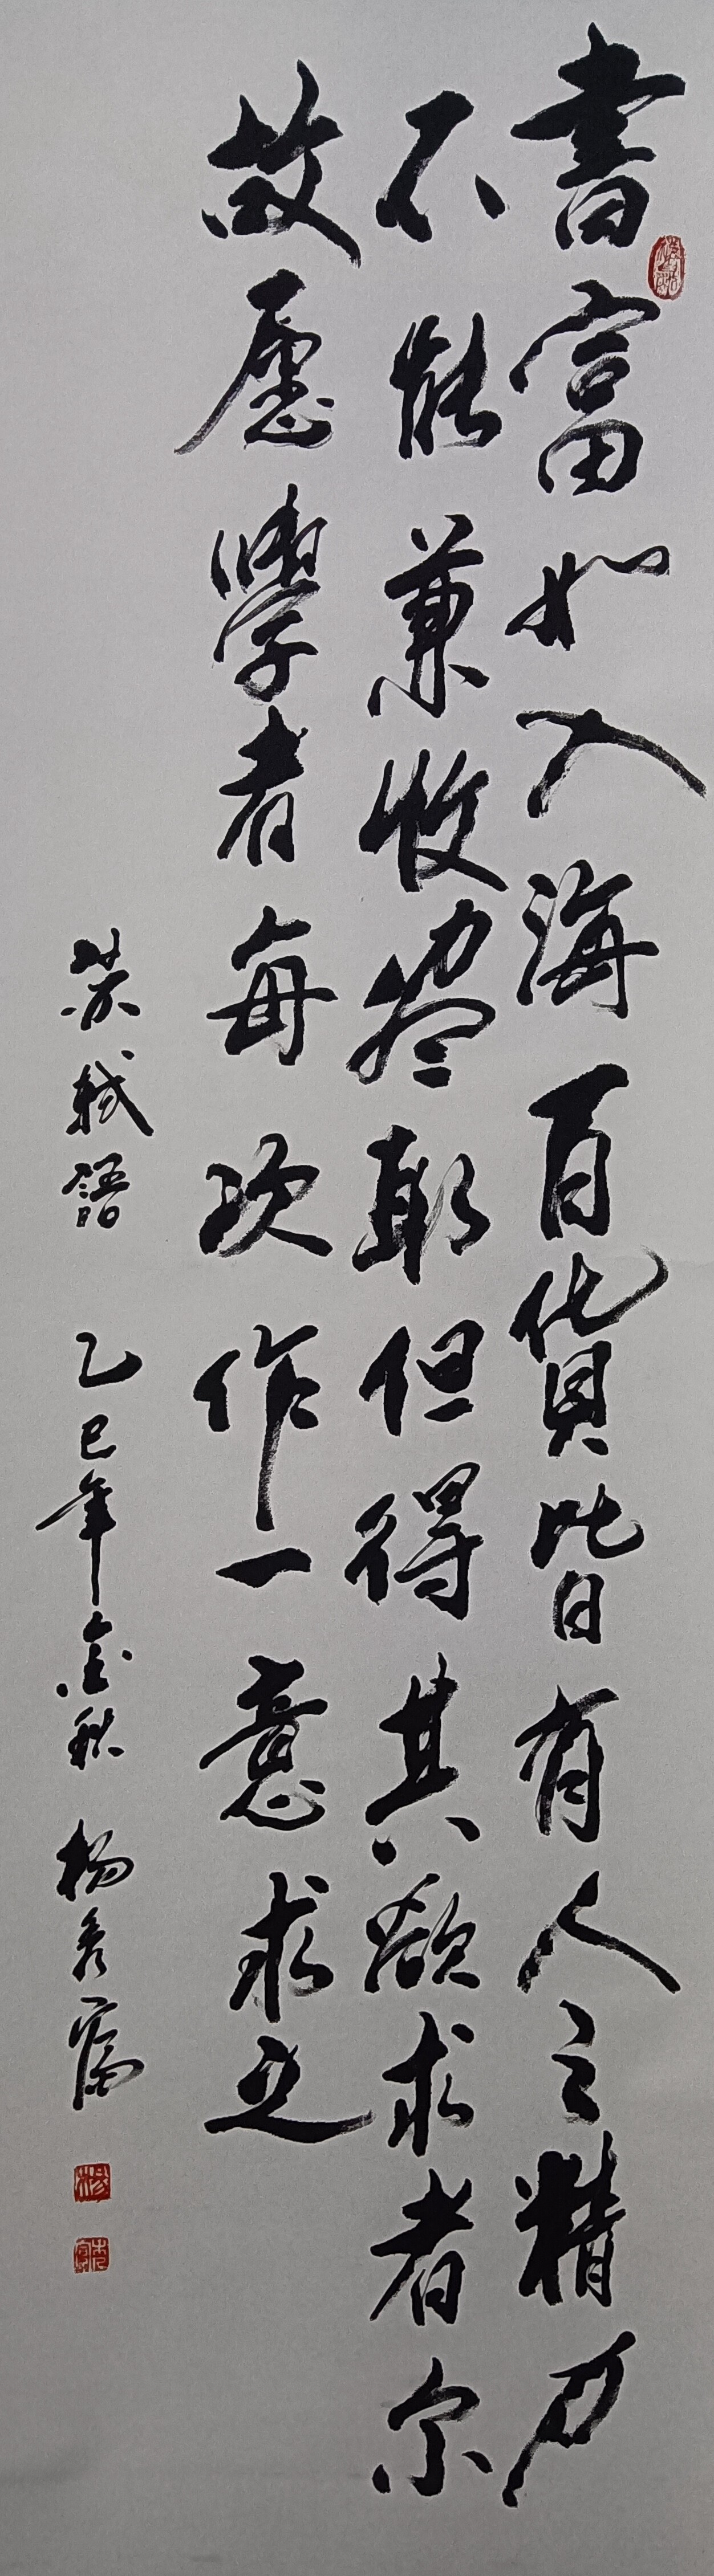 書富如入海百貨皆有人之精力
不能兼收盡取但得其欲求者尔
故愿學者每次作一意求之
苏軾語 乙巳年金秋 杨秀富